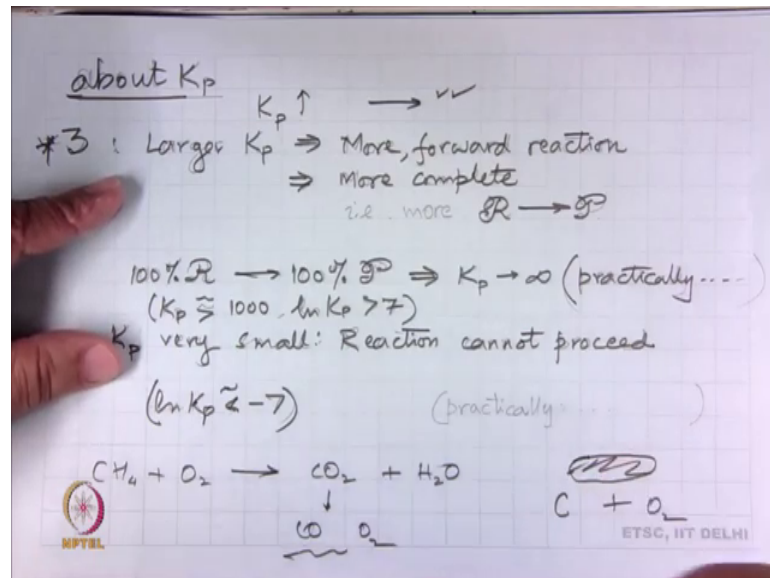 about Kp
Kp ↑ → ✓✓
*3 : Larger Kp ⇒ More, forward reaction
⇒ More complete
i.e. more R → P
100% R → 100% P ⇒ Kp → ∞ (practically....
(Kp ≳ 1000, ln Kp > 7)
Kp very small: Reaction cannot proceed
(ln Kp ≲ -7) (practically... )
CH₄ + O₂ → CO₂ + H₂O
↓
CO O₂
C + O₂
NPTEL
ETSC, IIT DELHI